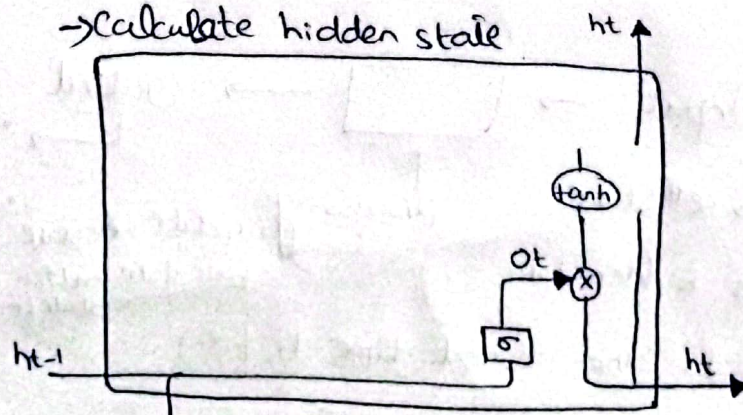 →Calculate hidden state
ht
tanh
Ot
x
σ
ht-1
ht